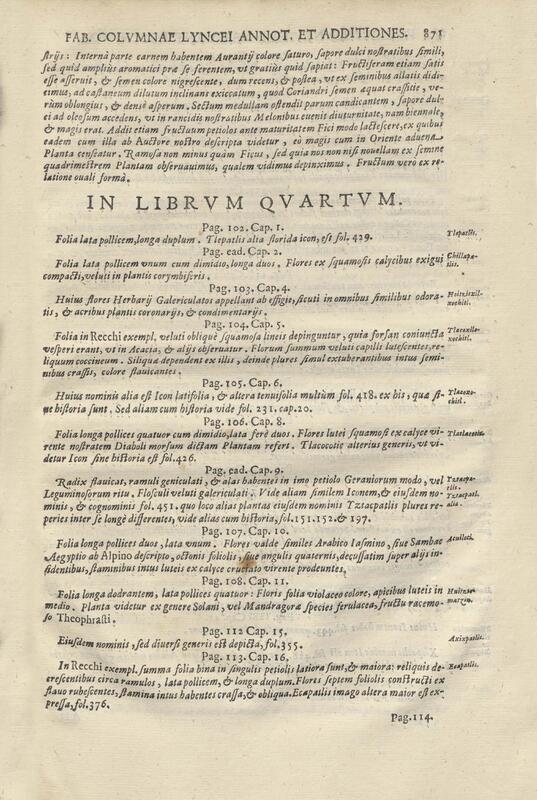 FAB. COLVMNAE LYNCEI ANNOT. ET ADDITIONES. 871
strijs: Internâ parte carnem habentem Aurantij colore saturo, sapore dulci nostratibus simili,
sed quid ampliùs aromatici præ se ferentem, vt gratiùs quid sapiat: Fructiferam etiam satis
esse asseruit, & semen colore nigrescente, dum recens, & postea, vt ex seminibus allatis didi-
cimus, ad castaneum dilutum inclinans exiccatum, quod Coriandri semen æquat crassitie, ve-
rùm oblongius, & densè asperum. Sectum medullam ostendit parum candicantem, sapore dul-
ci ad oleosum accedens, vt in rancidis nostratibus Melonibus euenit diuturnitate, nam biennale,
& magis erat. Addit etiam fructuum petiolos ante maturitatem Fici modo lactescere, ex quibus
eadem cum illa ab Auctore nostro descripta videtur, eò magis cum in Oriente aduena
Planta censeatur. Ramosa non minus quàm Ficus, sed quia nos non nisi nouellam ex semine
quadrimestrem Plantam obseruauimus, qualem vidimus depinximus. Fructum verò ex re-
latione ouali formâ.
IN LIBRVM QVARTVM.
Pag. 102. Cap. 1.
Folia lata pollicem, longa duplum. Tlepatlis alta florida icon, est fol. 429.
Tlepatlis.
Pag. ead. Cap. 2.
Folia lata pollicem vnum cum dimidio, longa duos. Flores ex squamosis calycibus exigui
compacti, veluti in plantis corymbiferis.
Pag. 103. Cap. 4.
Huius flores Herbarij Galericulatos appellant ab effigie, sicuti in omnibus similibus odora-
tis, & acribus plantis coronarijs, & condimentarijs.
Pag. 104. Cap. 5.
Folia in Recchi exempl. veluti obliquè squamosa lineis depinguntur, quia forsan coniuncta
vesperi erant, vt in Acacia, & alijs obseruatur. Florum summum veluti capilli lutescentes, re-
liquum coccineum. Siliquæ dependent ex illis, deinde plures simul extuberantibus intus semi-
nibus crassis, colore flauicantes.
Pag. 105. Cap. 6.
Huius nominis alia est Icon latifolia, & altera tenuifolia multùm fol. 418. ex his, quæ si-
ne historia sunt. Sed aliam cum historia vide fol. 231. cap. 20.
Pag. 106. Cap. 8.
Folia longa pollices quatuor cum dimidio, lata ferè duos. Flores lutei squamosi ex calyce vi-
rente nostratem Diaboli morsum dictam Plantam refert. Tlacocotic alterius generis, vt vi-
detur Icon sine historia est fol. 426.
Pag. ead. Cap. 9.
Radix flauicat, ramuli geniculati, & alas habentes in imo petiolo Geraniorum modo, vel
Leguminosorum ritu. Flosculi veluti galericulati. Vide aliam similem Iconem, & eiusdem no-
minis, & cognominis fol. 451. quo loco alias plantas eiusdem nominis Tztacaptlis plures re-
peries inter se longè differentes, vide alias cum historia, fol. 151. 152. & 197.
Pag. 107. Cap. 10.
Folia longa pollices duos, lata vnum. Flores valde similes Arabico Iasmino, siue Sambac
Aegyptio ab Alpino descripto, octonis foliolis, siue angulis quaternis, decussatim super alijs in-
sidentibus, staminibus intus luteis ex calyce cruciato virente prodeuntes.
Pag. 108. Cap. 11.
Folia longa dodrantem, lata pollices quatuor: Floris folia violaceo colore, apicibus luteis in
medio. Planta videtur ex genere Solani, vel Mandragoræ species ferulacea, fructu racemo-
so Theophrasti.
Pag. 112 Cap. 15.
Eiusdem nominis, sed diuersi generis est depicta, fol. 355.
Axixpatlis.
Pag. 113. Cap. 16.
In Recchi exempl. summa folia bina in singulis petiolis latiora sunt, & maiora: reliquis de-
crescentibus circa ramulos, lata pollicem, & longa duplum. Flores septem foliolis constructi ex
flauo rubescentes, stamina intus habentes crassa, & obliqua. Ecapatlis imago altera maior est ex-
pressa, fol. 376.
Ecapatlis.
Pag. 114.